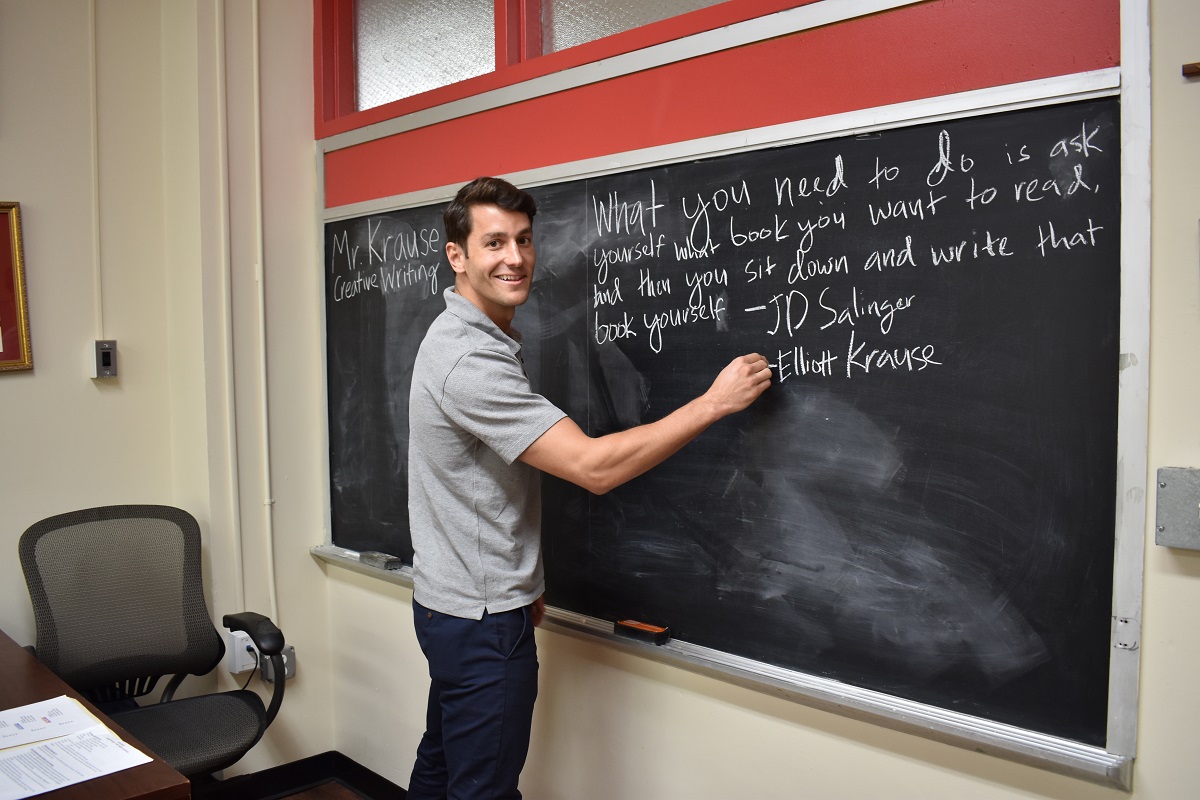 Mr. Krause
Creative Writing
What you need to do is ask
yourself what book you want to read,
and then you sit down and write that
book yourself -JD Salinger
-Elliott Krause